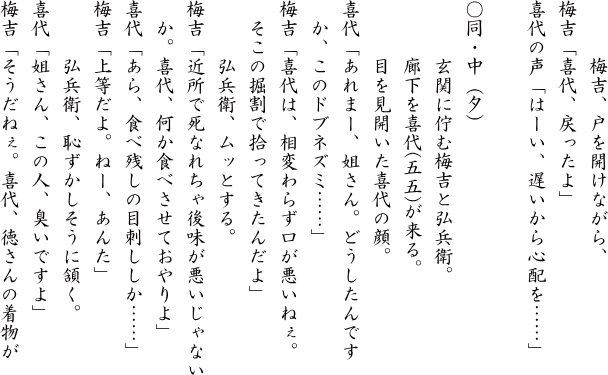 梅吉、戸を開けながら、
梅吉「喜代、戻ったよ」
喜代の声「はーい、遅いから心配を……」
〇同・中（夕）
玄関に佇む梅吉と弘兵衛。
廊下を喜代(五五)が来る。
目を見開いた喜代の顔。
喜代「あれまー、姐さん。どうしたんです
か、このドブネズミ……」
梅吉「喜代は、相変わらず口が悪いねぇ。
そこの掘割で拾ってきたんだよ」
弘兵衛、ムッとする。
梅吉「近所で死なれちゃ後味が悪いじゃない
か。喜代、何か食べさせておやりよ」
喜代「あら、食べ残しの目刺ししか……」
梅吉「上等だよ。ねー、あんた」
弘兵衛、恥ずかしそうに頷く。
喜代「姐さん、この人、臭いですよ」
梅吉「そうだねぇ。喜代、徳さんの着物が